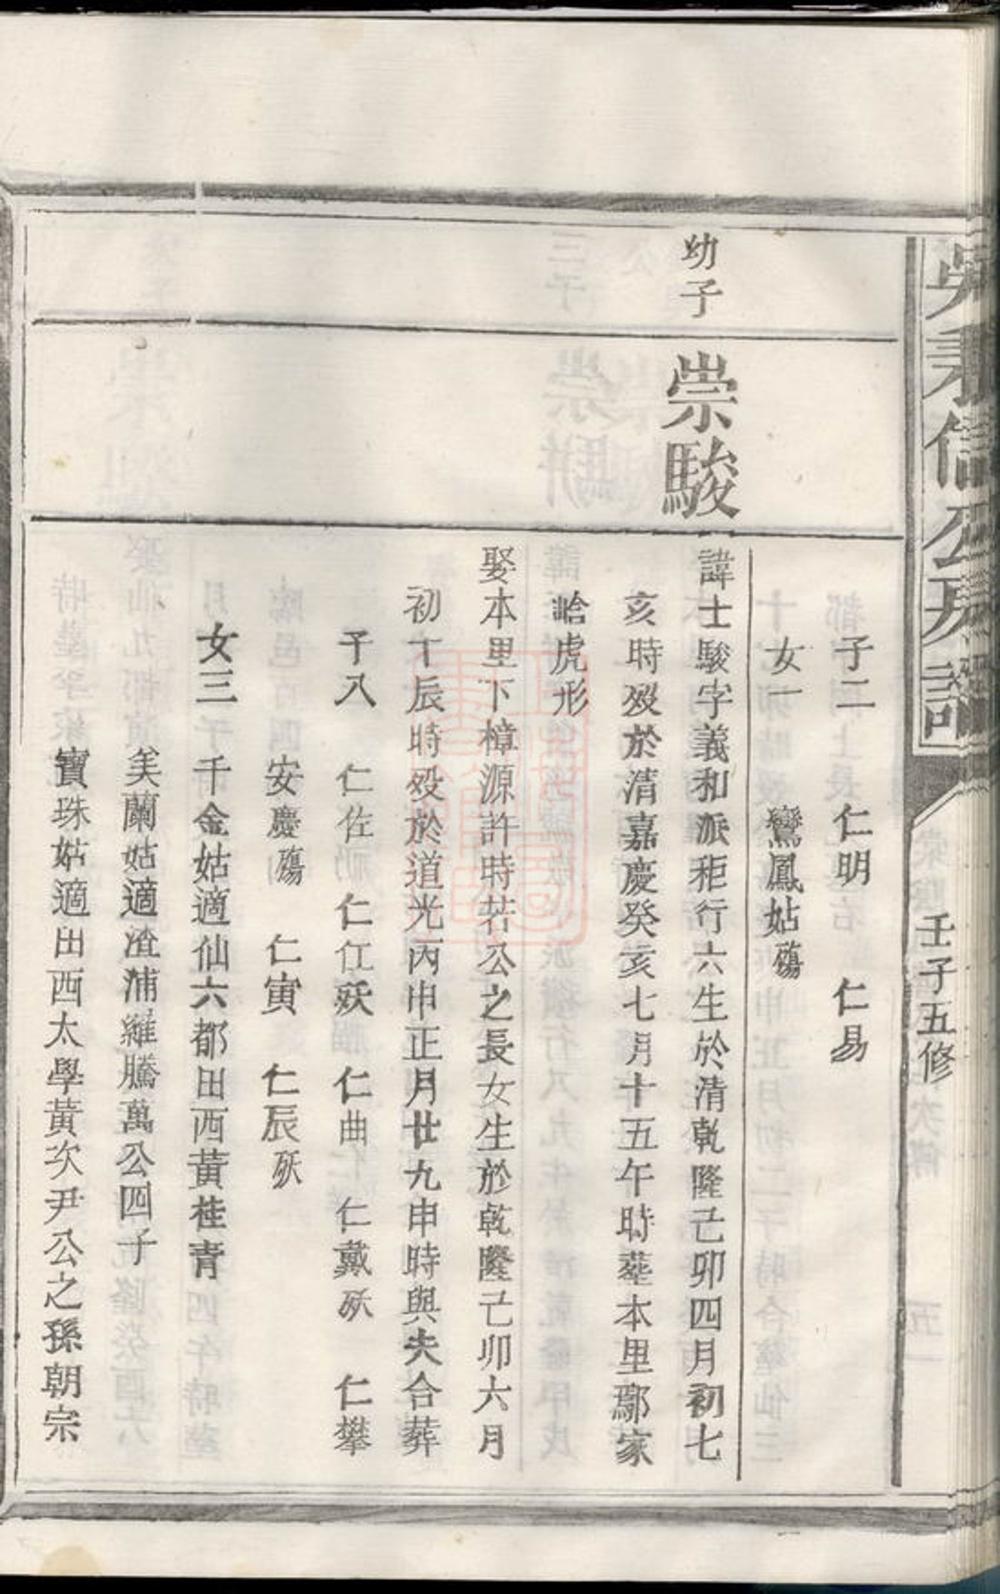 吳秉信公房譜
壬子五修
子二　仁明　仁易
女一　鸞鳳姑殤
幼子
崇駿
諱士駿字義和派秬行六生於清乾隆己卯四月初七
亥時歿於清嘉慶癸亥七月十五午時塟本里鄢家
峆虎形
娶本里下樟源許時若公之長女生於乾隆己卯六月
初丁辰時歿於道光丙申正月廿九申時與夫合葬
子八　仁佐　仁江殀　仁曲　仁戴殀　仁攀
安慶殤　仁寅　仁辰殀
女三　千金姑適仙六都田西黃桂青
美蘭姑適渣浦維騰萬公四子
寶珠姑適田西太學黃次尹公之孫朝宗